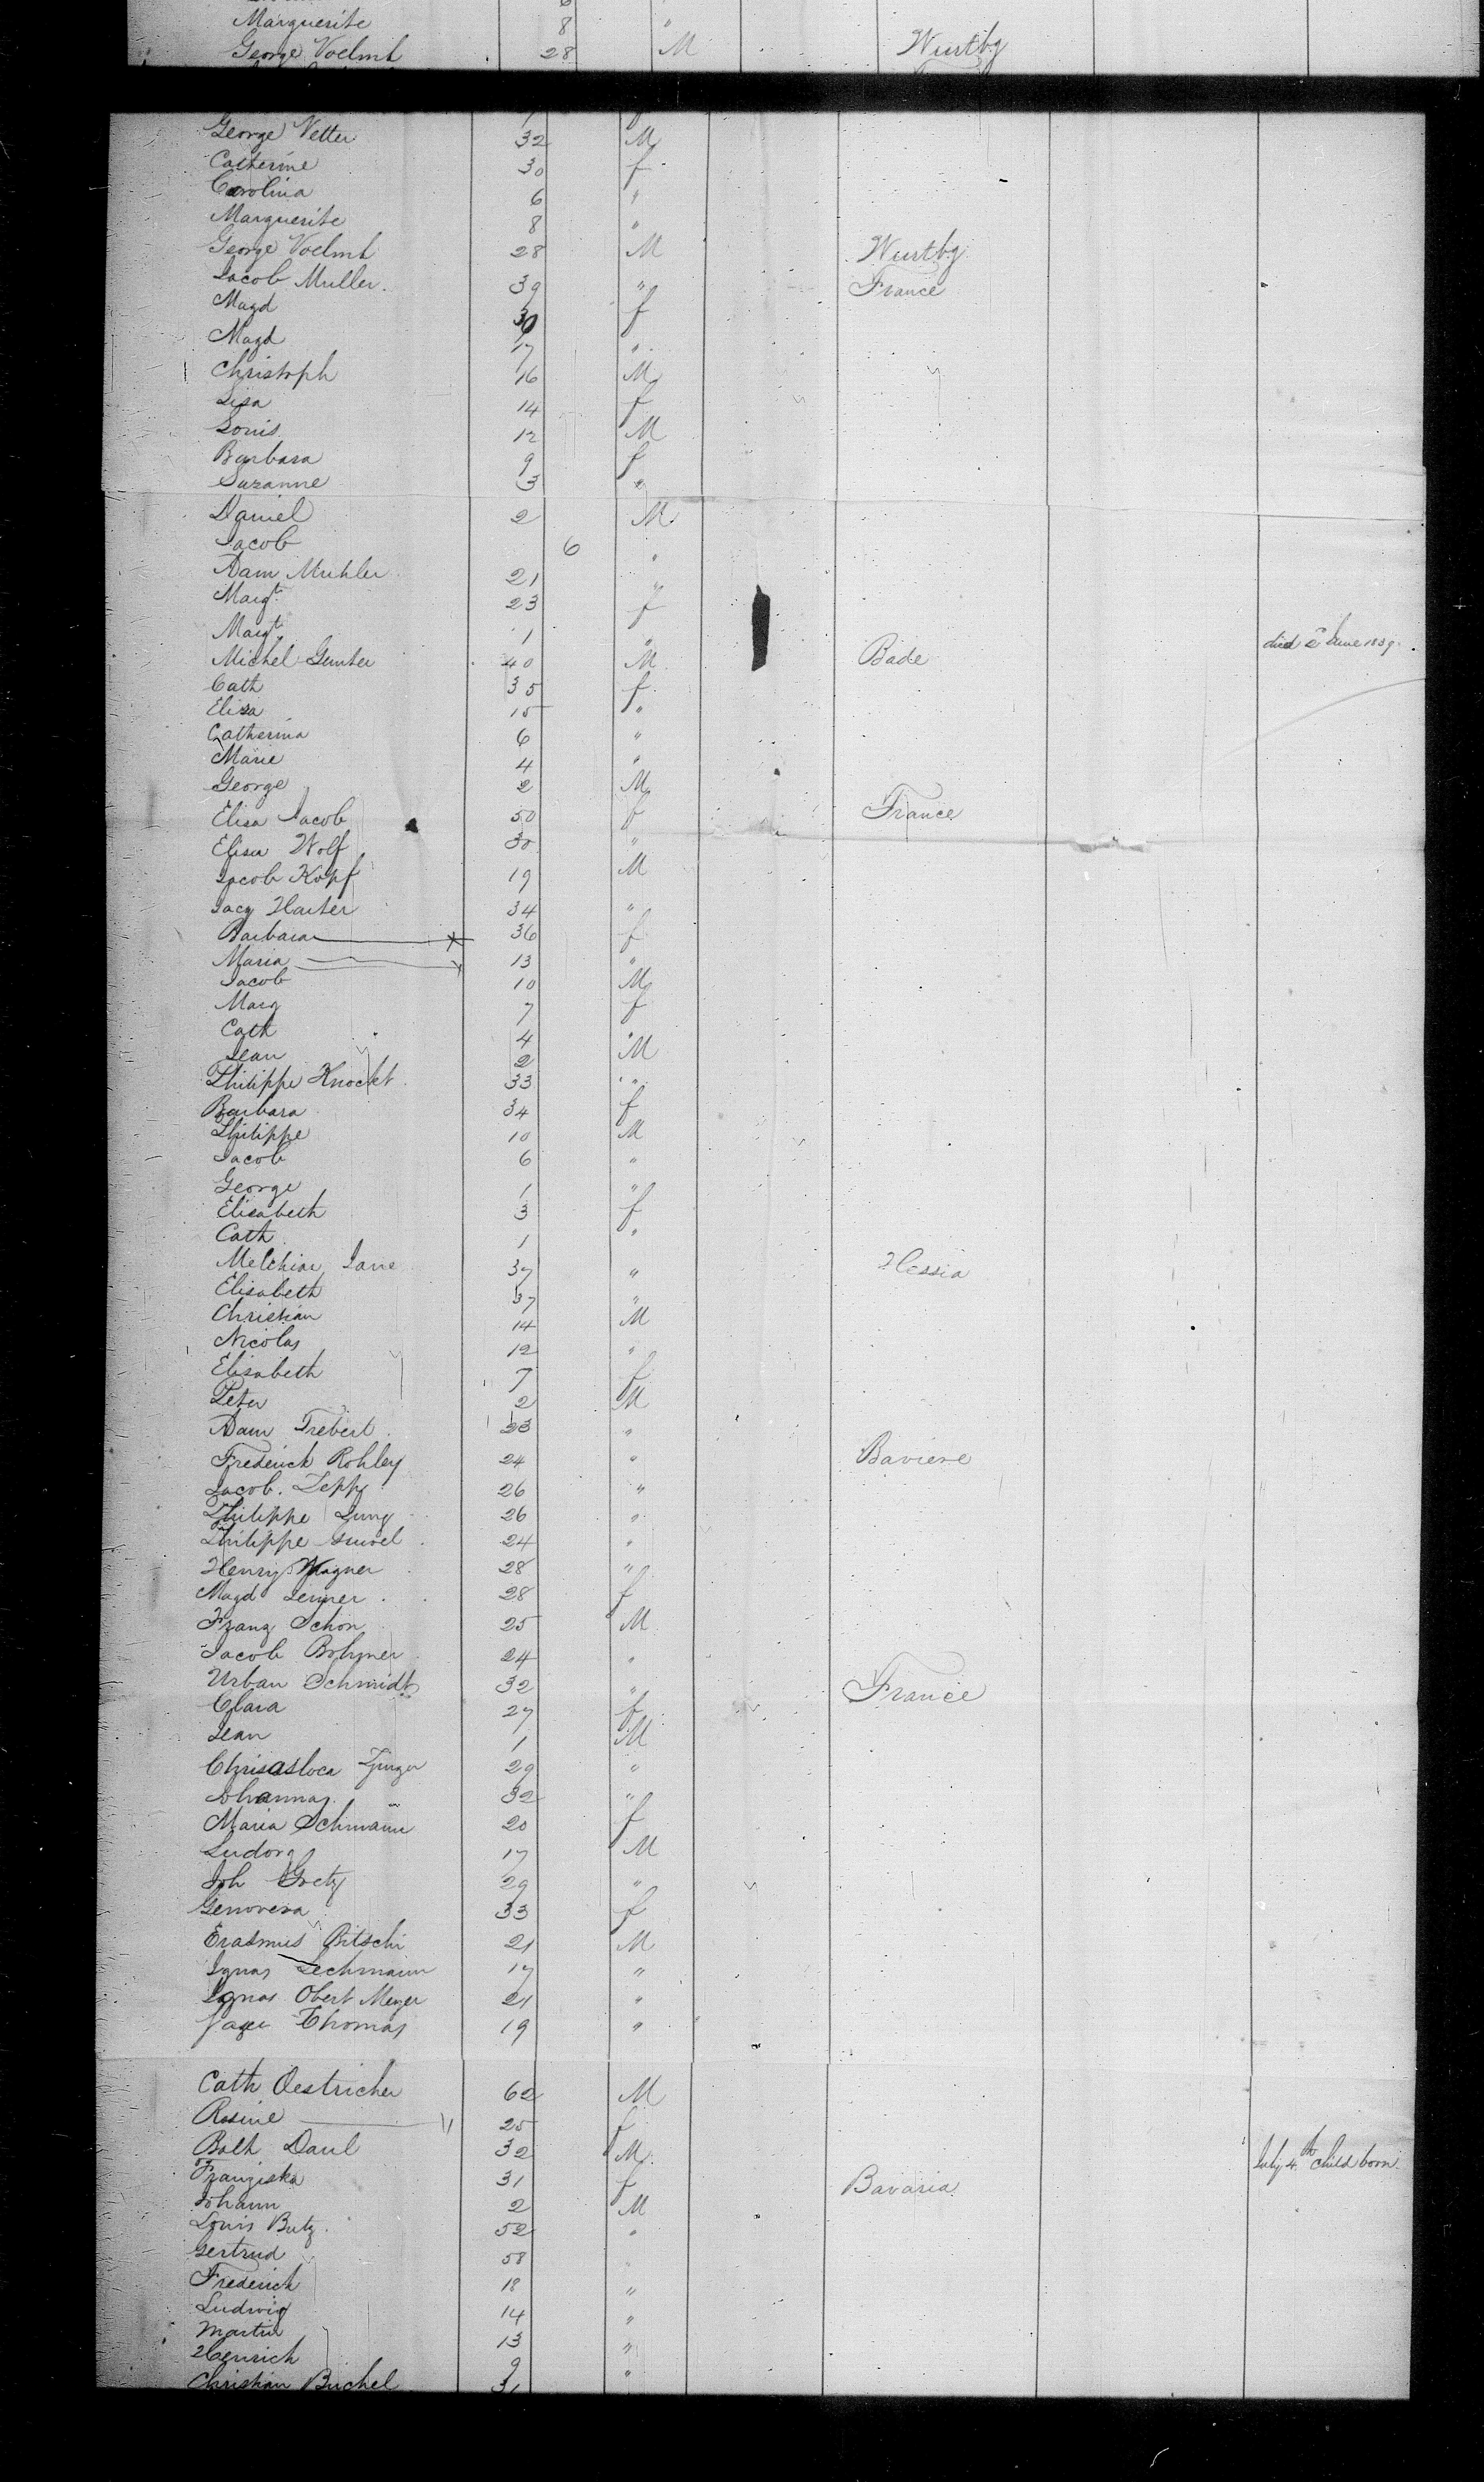 Marguerite 8 "
George Voelmh 28 M Wurtbg
George Vetter 32 M
Catherine 30 f
Carolina 6 "
Marguerite 8 "
George Voelmh 28 M Wurtbg
Jacob Muller. 39 " France
Magd 30 f
Magd 17 "
Christoph 16 M
Lisa 14 f
Louis 12 M
Barbara 9 f
Suzanne 3 "
Daniel 2 M
Jacob 6 "
Adam Muhler 21 "
Margt. 23 f
Margt. 1 " died 2d June 1839.
Michel Gunter 40 M Bade
Cath 35 f
Elisa 15 "
Catherina 6 "
Marie 4 "
George 2 M
Elisa Jacob 50 f France
Elisa Wolf 30 "
Jacob Kopf 19 M
Jacq Harter 34 "
Barbara 36 f
Maria 13 "
Jacob 10 M
Marg 7 f
Cath 4 "
Jean 2 M
Philippe Knockt 33 "
Barbara 34 f
Philippe 10 M
Jacob 6 "
George 1 "
Elisabeth 3 f
Cath 1 "
Melchior 37 " Hessia
Elisabeth 37 "
Christian 14 M
Nicolas 12 "
Elisabeth 7 f
Peter 2 M
Adam Trebert 23 "
Frederick Rohley 24 " Baviere
Jacob. Zepp 26 "
Philippe Jung 26 "
Philippe 24 "
Henry Wagner 28 "
Magd 28 f
Franz Schon 25 M
Jacob Bohmer 24 "
Urban Schmidt 32 " France
Clara 27 f
Jean 1 M
29 "
Johannas 32 "
Maria Schmann 20 f
Ludorg 17 M
Joh Goetz 29 "
Genoveva 33 f
Erasmus Bitschi 21 M
Ignas Lechmann 17 "
Ignas Obert Meyer 21 "
Thomas 19 "
Cath Oestricher 62 M
Rosine 25 f
Balt Daul 32 M July 4th child born
Franziska 31 f Bavaria
Johann 2 M
Louis Butz. 52 "
Gertrud 58
Frederich 18 "
Ludwig 14 "
Martin 13 "
Henrich 9 "
Christian Buchel 31